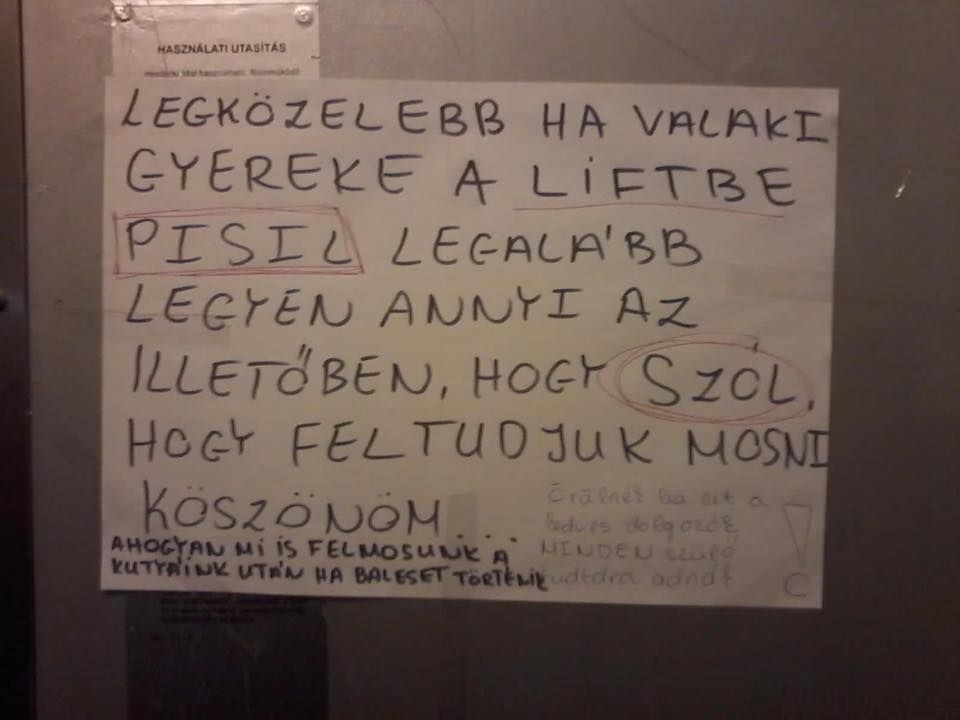 HASZNÁLATI UTASÍTÁS
LEGKÖZELEBB HA VALAKI
GYEREKE A LIFTBE
PISIL LEGALÁBB
LEGYEN ANNYI AZ
ILLETŐBEN, HOGY SZÓL,
HOGY FELTUDJUK MOSNI
KÖSZÖNÖM...
AHOGYAN MI IS FELMOSUNK A
KUTYÁINK UTÁN HA BALESET TÖRTÉNIK
Örülnék ha ezt a
kedves dolgozók
MINDEN szülő
tudtára adnák